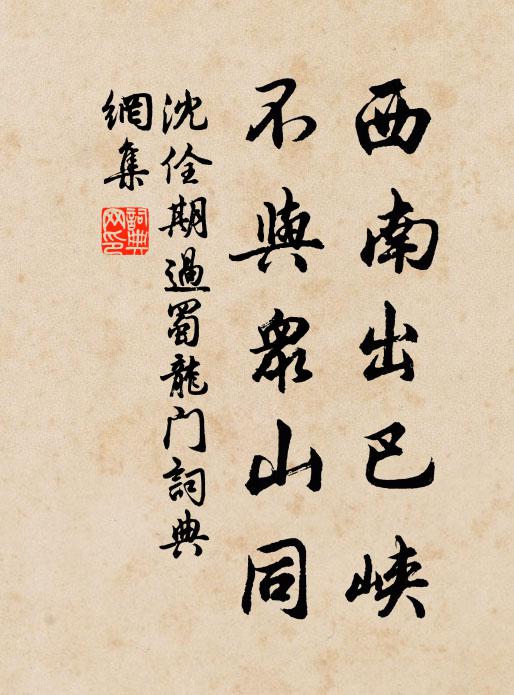 西南出巴峽
不與眾山同
沈佺期過蜀龍门詞典
網集
詞典
网印